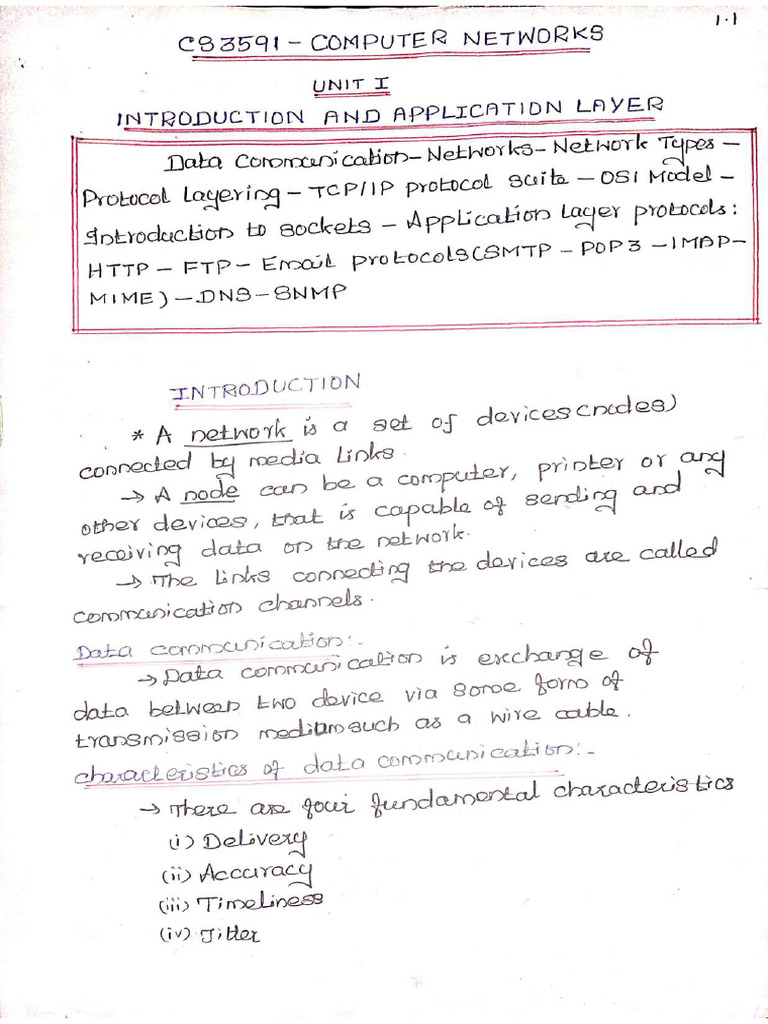 1.1
CS3591 - COMPUTER NETWORKS
UNIT I
INTRODUCTION AND APPLICATION LAYER
Data Communication - Networks - Network Types -
Protocol Layering - TCP/IP protocol suite - OSI Model -
Introduction to sockets - Application Layer protocols:
HTTP - FTP - Email protocols (SMTP - POP3 - IMAP -
MIME) - DNS - SNMP
INTRODUCTION
* A network is a set of devices (nodes)
connected by media links.
→ A node can be a computer, printer or any
other devices, that is capable of sending and
receiving data on the network.
→ The links connecting the devices are called
communication channels.
Data communication:-
→ Data communication is exchange of
data between two device via some form of
transmission medium such as a wire cable.
characteristics of data communication:-
→ There are four fundamental characteristics
(i) Delivery
(ii) Accuracy
(iii) Timeliness
(iv) Jitter